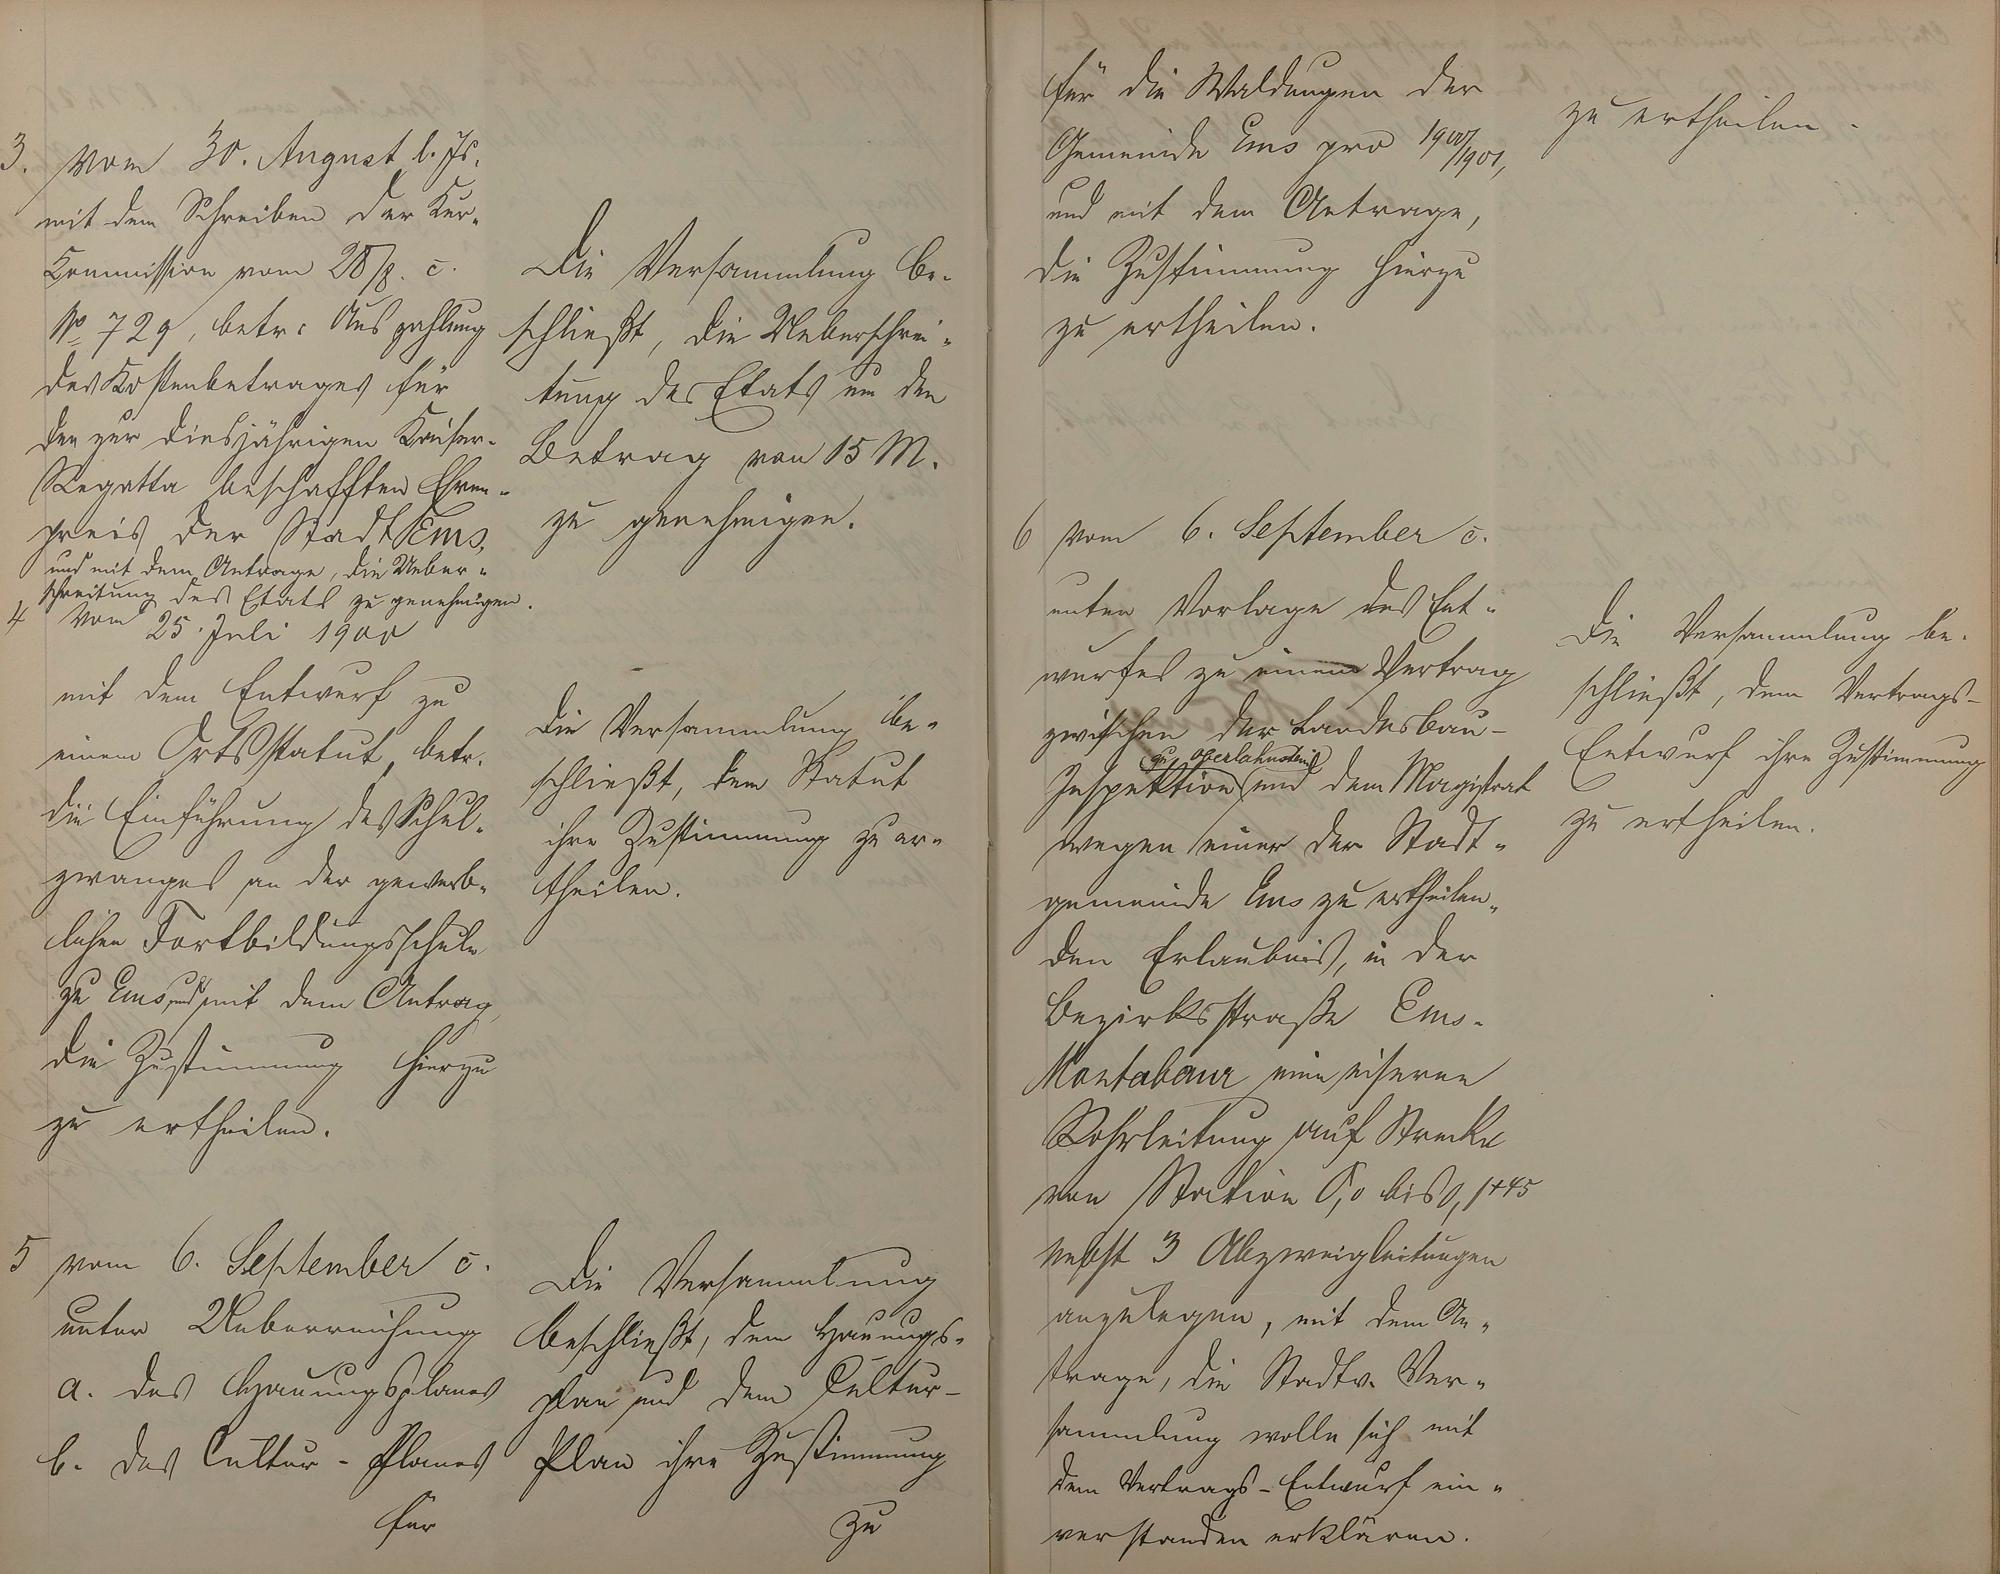 3. vom 30. August l. Js.
mit dem Schreiben der Kur-
Commission vom 28/8. c.
No 729, betr: Auszahlung
des Kostenbetrages für
den zur diesjährigen Kaiser-
Regatta beschafften Ehren-
preis der Stadt Ems,
und mit dem Antrage, die Ueber-
schreitung des Etats zu genehmigen.
Die Versammlung be-
schließt, die Ueberschrei-
tung des Etats um den
Betrag von 15 M.
zu genehmigen.
4 Vom 25. Juli 1900
mit dem Entwurf zu
einem Ortsstatut, betr.
die Einführung des Schul-
zwanges an der gewerb-
lichen Fortbildungsschule
zu Ems, und mit dem Antrag,
die Zustimmung hierzu
zu ertheilen.
Die Versammlung be-
schließt, dem Statut
ihre Zustimmung zu er-
theilen.
5 vom 6. September c.
unter Ueberreichung
a. des Hauungsplanes
b. des Cultur-Planes
für
Die Versammlung
beschließt, dem Hauungs-
plan und dem Cultur-
Plan ihre Zustimmung
zu
für die Waldungen der
Gemeinde Ems pro 1900/1901,
und mit dem Antrage,
die Zustimmung hierzu
zu ertheilen.
zu ertheilen.
6 vom 6. September c.
unter Vorlage des Ent-
wurfes zu einem Vertrag
zwischen der Landesbau-
Inspektion (zu Oberlahnstein) und dem Magistrat
wegen einer der Stadt-
gemeinde Ems zu ertheilen-
den Erlaubniß, in der
Bezirksstraße Ems-
Montabaur eine eiserne
Rohrleitung auf Strecke
von Station 0,0 bis 0,1+45
nebst 3 Abzweigleitungen
anzulegen, mit dem An-
trage, die Stadtv. Ver-
sammlung wolle sich mit
dem Vertrags-Entwurf ein-
verstanden erklären.
Die Versammlung be-
schließt, dem Vertrags-
Entwurf ihre Zustimmung
zu ertheilen.